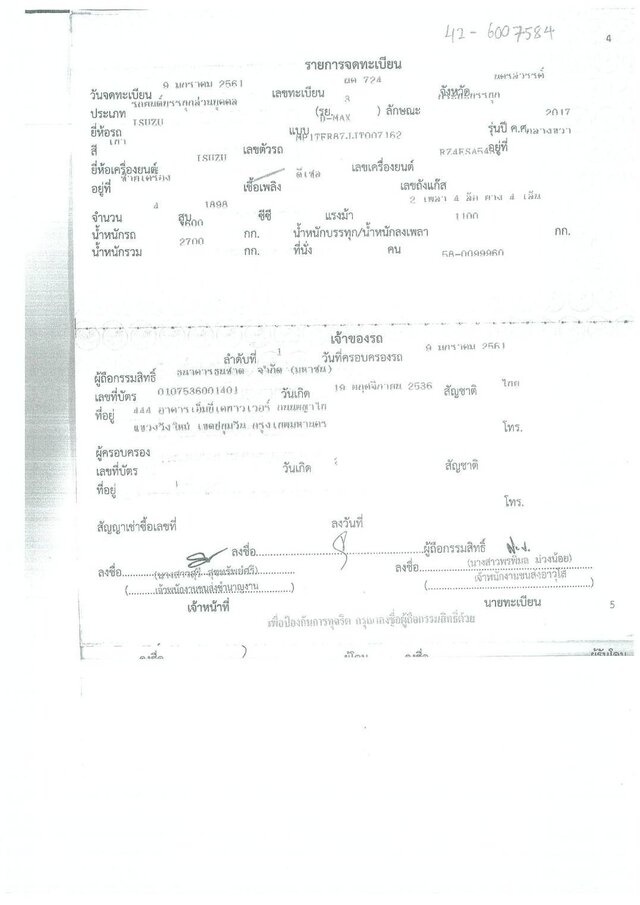 42-6007584
4
รายการจดทะเบียน
วันจดทะเบียน 9 มกราคม 2561 เลขทะเบียน ผด 724 จังหวัด นครสวรรค์
ประเภท รถยนต์บรรทุกส่วนบุคคล (รย. 3 ) ลักษณะ
ยี่ห้อรถ ISUZU แบบ D-MAX รุ่นปี ค.ศ. 2017
สี เทา เลขตัวรถ MP1TFR87JJT007162 อยู่ที่ กลางขวา
ยี่ห้อเครื่องยนต์ ISUZU เลขเครื่องยนต์
อยู่ที่ ซ้ายเครื่อง เชื้อเพลิง ดีเซล เลขถังแก๊ส
จำนวน 4 สูบ 1898 ซีซี แรงม้า 2 เพลา 4 ล้อ ยาง 4 เส้น
น้ำหนักรถ 1600 กก. น้ำหนักบรรทุก/น้ำหนักลงเพลา 1100 กก.
น้ำหนักรวม 2700 กก. ที่นั่ง คน
58-0099960
เจ้าของรถ
ลำดับที่ 1 วันที่ครอบครองรถ 9 มกราคม 2561
ผู้ถือกรรมสิทธิ์ ธนาคารธนชาต จำกัด (มหาชน)
เลขที่บัตร 0107536001401 วันเกิด 19 พฤศจิกายน 2536 สัญชาติ ไทย
ที่อยู่ 444 อาคารเอ็มบีเคทาวเวอร์ ถนนพญาไท
แขวงวังใหม่ เขตปทุมวัน กรุงเทพมหานคร โทร.
ผู้ครอบครอง
เลขที่บัตร วันเกิด สัญชาติ
ที่อยู่
โทร.
สัญญาเช่าซื้อเลขที่ ลงวันที่
ลงชื่อ ผู้ถือกรรมสิทธิ์
ลงชื่อ ลงชื่อ
(นางสาวพรพิมล ม่วงน้อย)
เจ้าพนักงานขนส่งชำนาญงาน เจ้าพนักงานขนส่งอาวุโส
เจ้าหน้าที่ นายทะเบียน
5
เพื่อป้องกันการทุจริต กรุณาลงชื่อผู้ถือกรรมสิทธิ์ด้วย